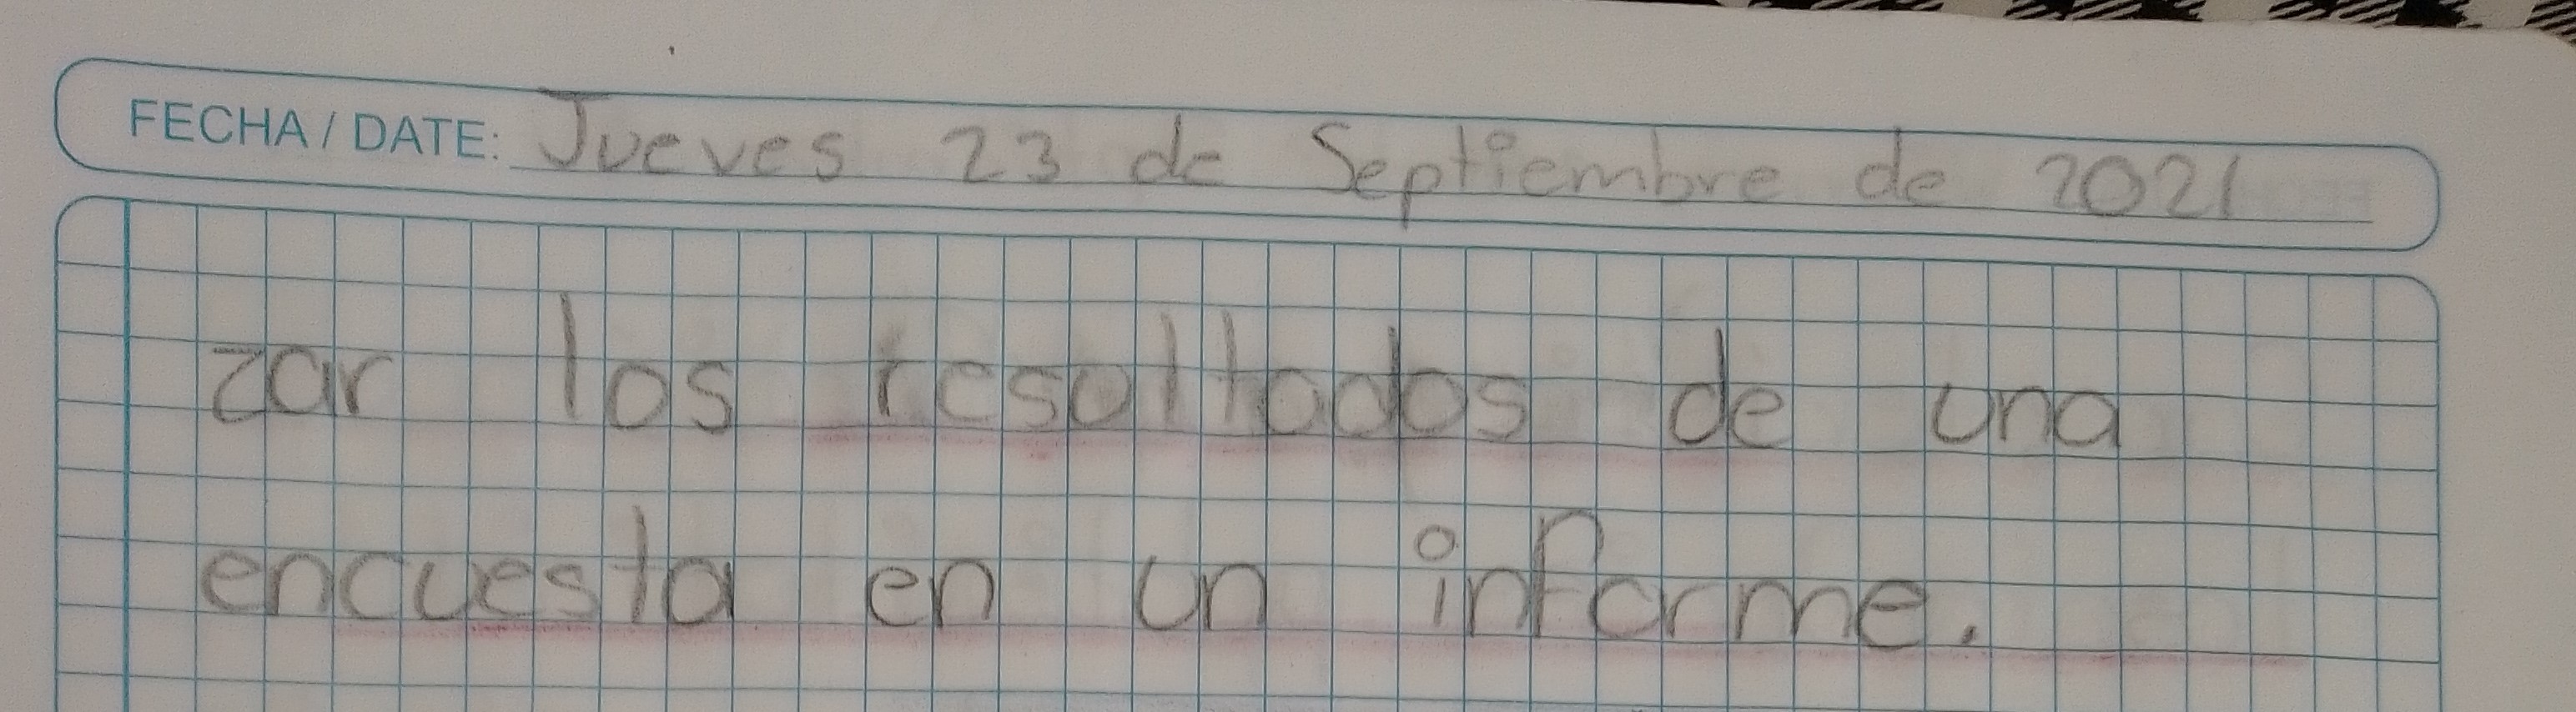 FECHA / DATE: Jueves 23 de Septiembre de 2021
zar los resultados de una
encuesta en un informe.